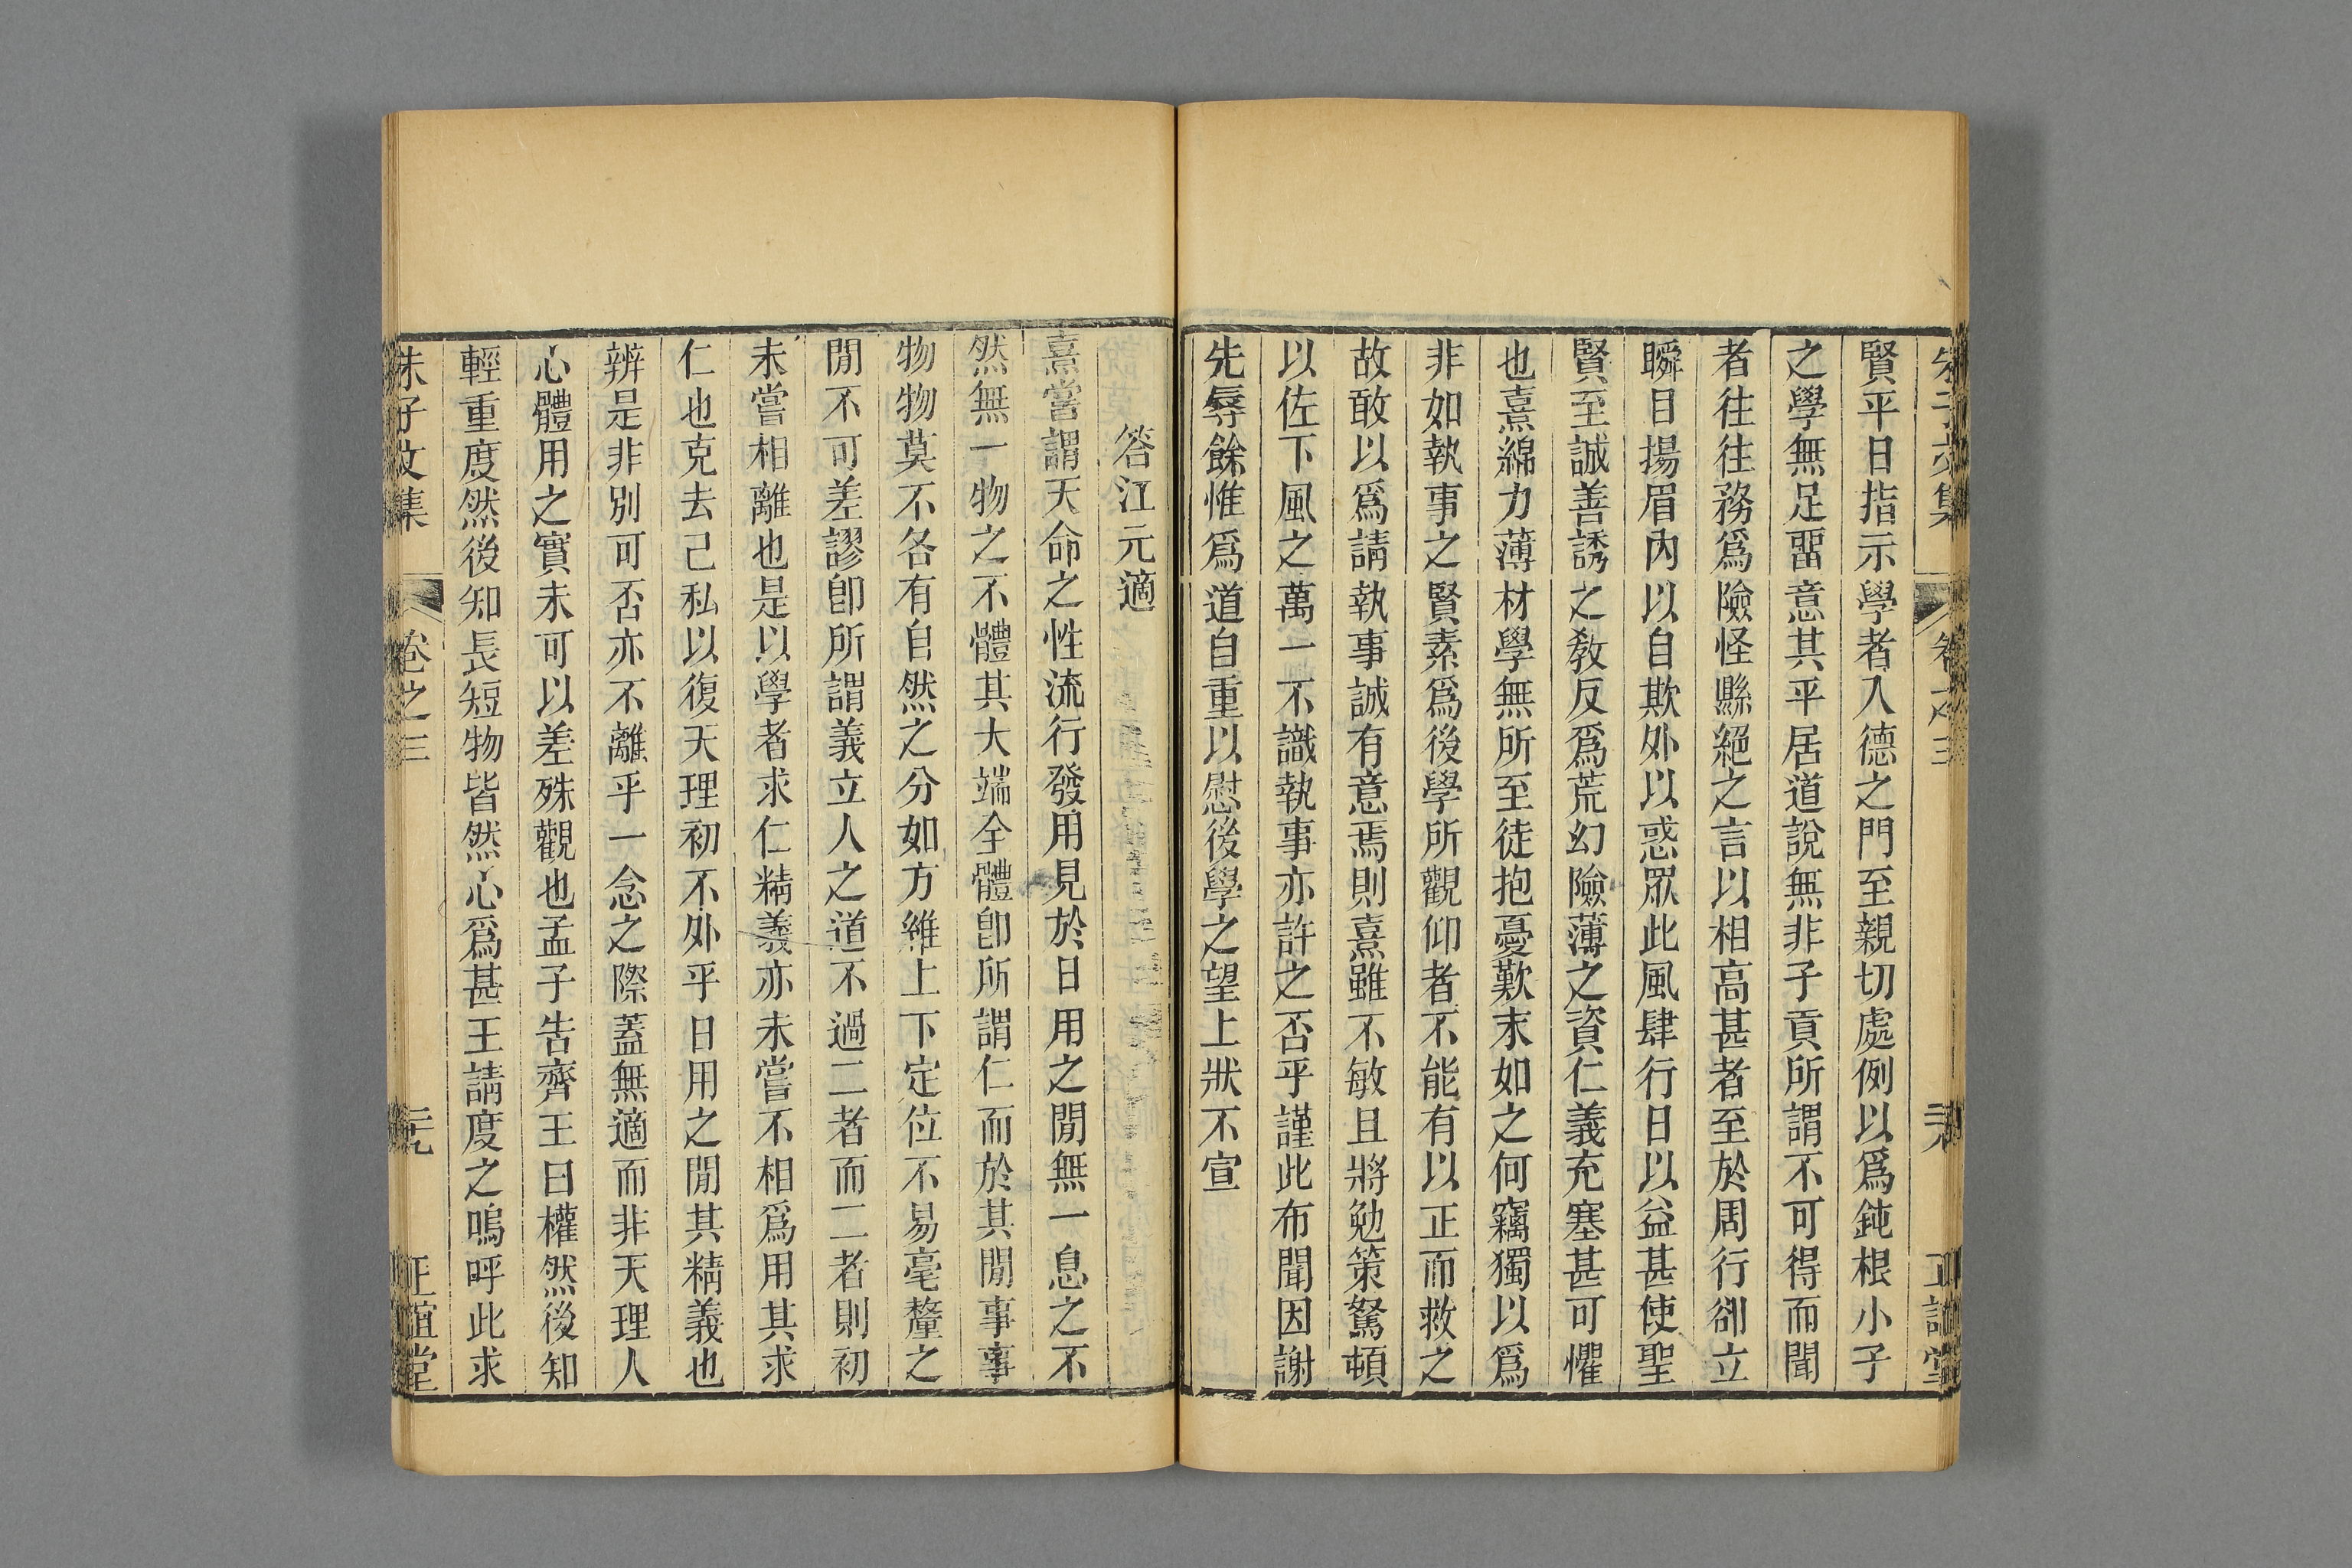 朱子文集 卷之三 正誼堂
賢平日指示學者入德之門至親切處例以爲鈍根小子
之學無足畱意其平居道說無非子貢所謂不可得而聞
者往往務爲險怪縣絕之言以相高甚者至於周行卻立
瞬目揚眉內以自欺外以惑眾此風肆行日以益甚使聖
賢至誠善誘之教反爲荒幻險薄之資仁義充塞甚可懼
也熹綿力薄材學無所至徒抱憂歎末如之何竊獨以爲
非如執事之賢素爲後學所觀仰者不能有以正而救之
故敢以爲請執事誠有意焉則熹雖不敏且將勉策駑頓
以佐下風之萬一不識執事亦許之否乎謹此布聞因謝
先辱餘惟爲道自重以慰後學之望上狀不宣
答江元適
熹嘗謂天命之性流行發用見於日用之閒無一息之不
然無一物之不體其大端全體卽所謂仁而於其閒事事
物物莫不各有自然之分如方維上下定位不易毫釐之
閒不可差謬卽所謂義立人之道不過二者而二者則初
未嘗相離也是以學者求仁精義亦未嘗不相爲用其求
仁也克去己私以復天理初不外乎日用之閒其精義也
辨是非別可否亦不離乎一念之際蓋無適而非天理人
心體用之實未可以差殊觀也孟子告齊王曰權然後知
輕重度然後知長短物皆然心爲甚王請度之嗚呼此求
朱子文集 卷之三 正誼堂